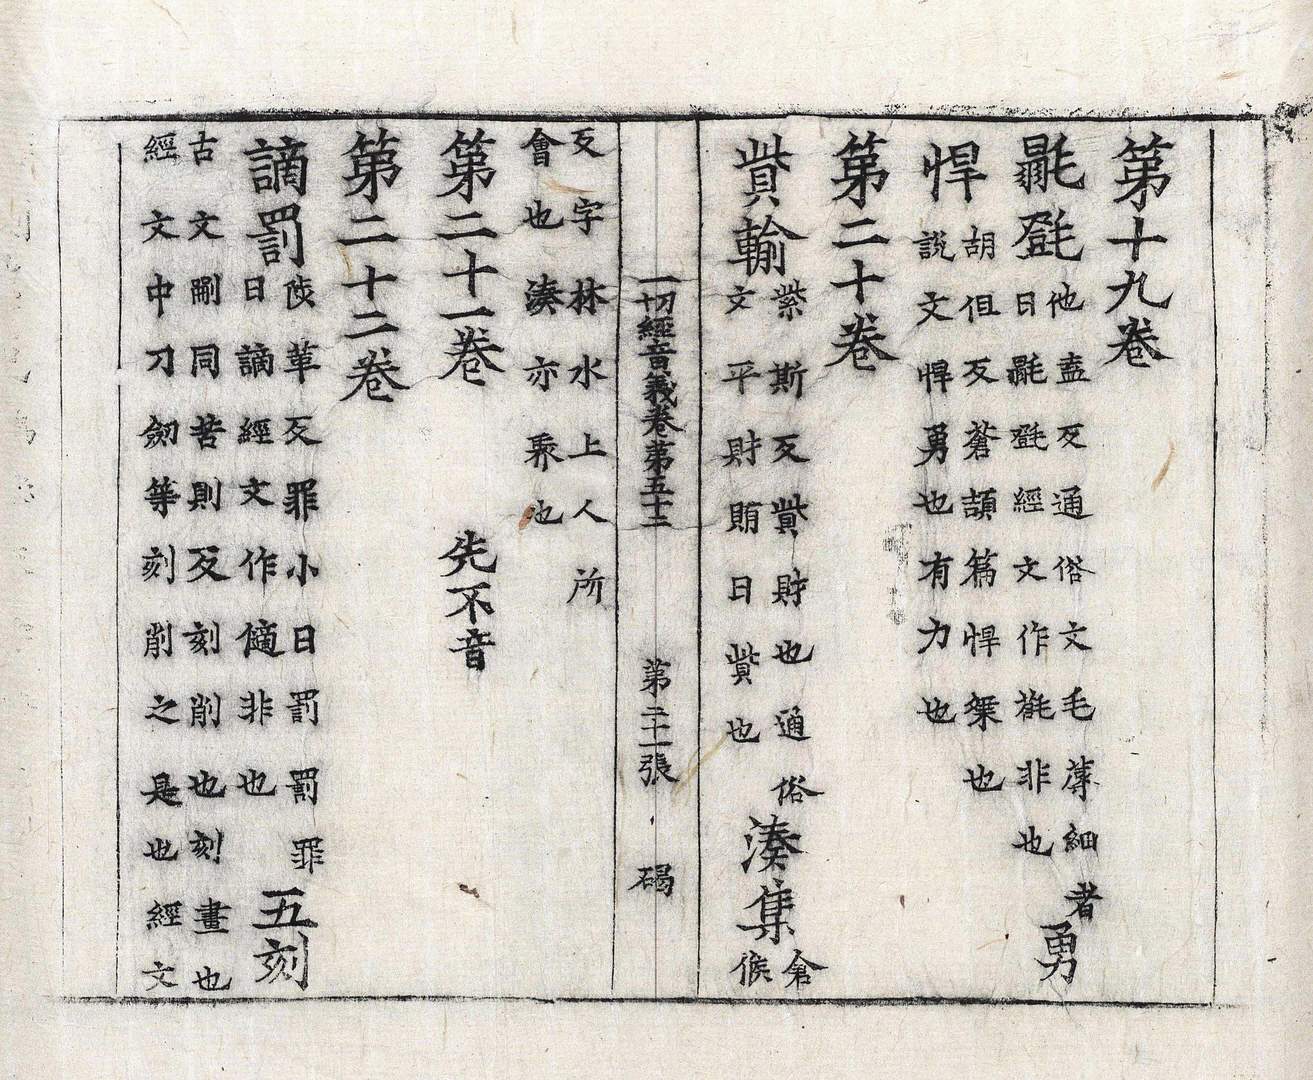 第十九卷
毾㲪他盍反通俗文毛蓐細者
曰毾㲪經文作㲮非也勇
悍胡但反蒼頡篇悍桀也
說文悍勇也有力也
第二十卷
貲輸紫斯反貲財也通俗
文平財賄曰貲也湊集倉候
反字林水上人所
會也湊亦聚也
第二十一卷 先不音
第二十二卷
謫罰徵革反罪小曰罰罰罪
曰謫經文作𠎝非也五刻
古文剛同苦則反刻削也刻畫也
經文中刀劒等刻削之是也經文
一切經音義卷第五十二 第二十一張 碣